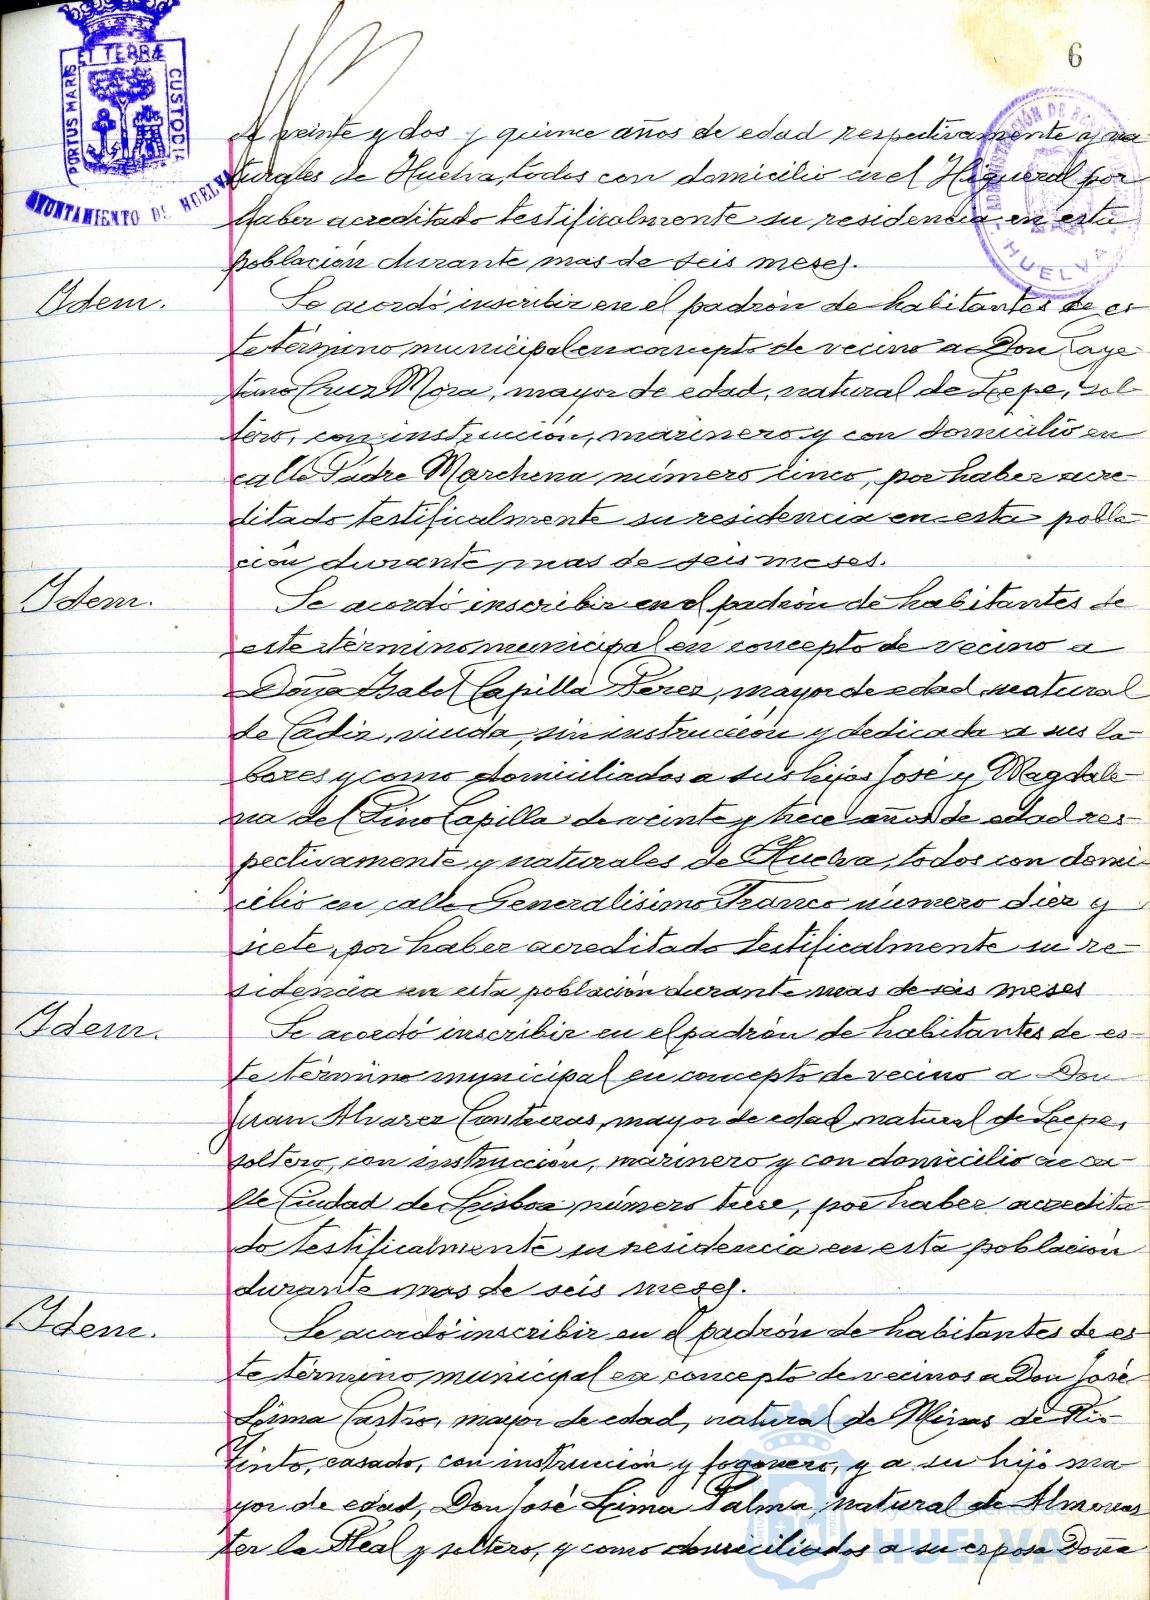 6
ET TERRÆ
PORTUS MARIS
CUSTODIA
AYUNTAMIENTO DE HUELVA
HUELVA
de veinte y dos y quince años de edad respectivamente y na
turales de Huelva, todos con domicilio en el Higueral por
haber acreditado testificalmente su residencia en esta
población durante mas de seis meses.
Idem.
Se acordó inscribir en el padrón de habitantes de es
te término municipal en concepto de vecino a Don Caye
tano Cruz Mora, mayor de edad, natural de Lepe, sol-
tero, con instrucción, marinero y con domicilio en
calle Padre Marchena número cinco, por haber acre-
ditado testificalmente su residencia en esta pobla-
ción durante mas de seis meses.
Idem.
Se acordó inscribir en el padrón de habitantes de
este término municipal en concepto de vecino a
Doña Isabel Capilla Perez, mayor de edad, natural
de Cádiz, viuda, sin instrucción y dedicada a sus la-
bores y como domiciliados a sus hijos José y Magdale-
na del Pino Capilla de veinte y trece años de edad res-
pectivamente y naturales de Huelva, todos con domi-
cilio en calle Generalisimo Franco número diez y
siete, por haber acreditado testificalmente su re-
sidencia en esta población durante mas de seis meses
Idem.
Se acordó inscribir en el padrón de habitantes de es-
te término municipal en concepto de vecino a Don
Juan Alvarez Contreras, mayor de edad, natural de Lepe,
soltero, con instrucción, marinero y con domicilio en ca-
lle Ciudad de Lisboa número trece, por haber acredita
do testificalmente su residencia en esta población
durante mas de seis meses.
Idem.
Se acordó inscribir en el padrón de habitantes de es
te término municipal en concepto de vecinos a Don José
Lima Castro, mayor de edad, natural de Minas de Rio-
tinto, casado, con instrucción y fogonero, y a su hijo ma
yor de edad, Don José Lima Palma, natural de Almonas
ter la Real y soltero, y como domiciliados a su esposa Doña
Ayuntamiento de
HUELVA